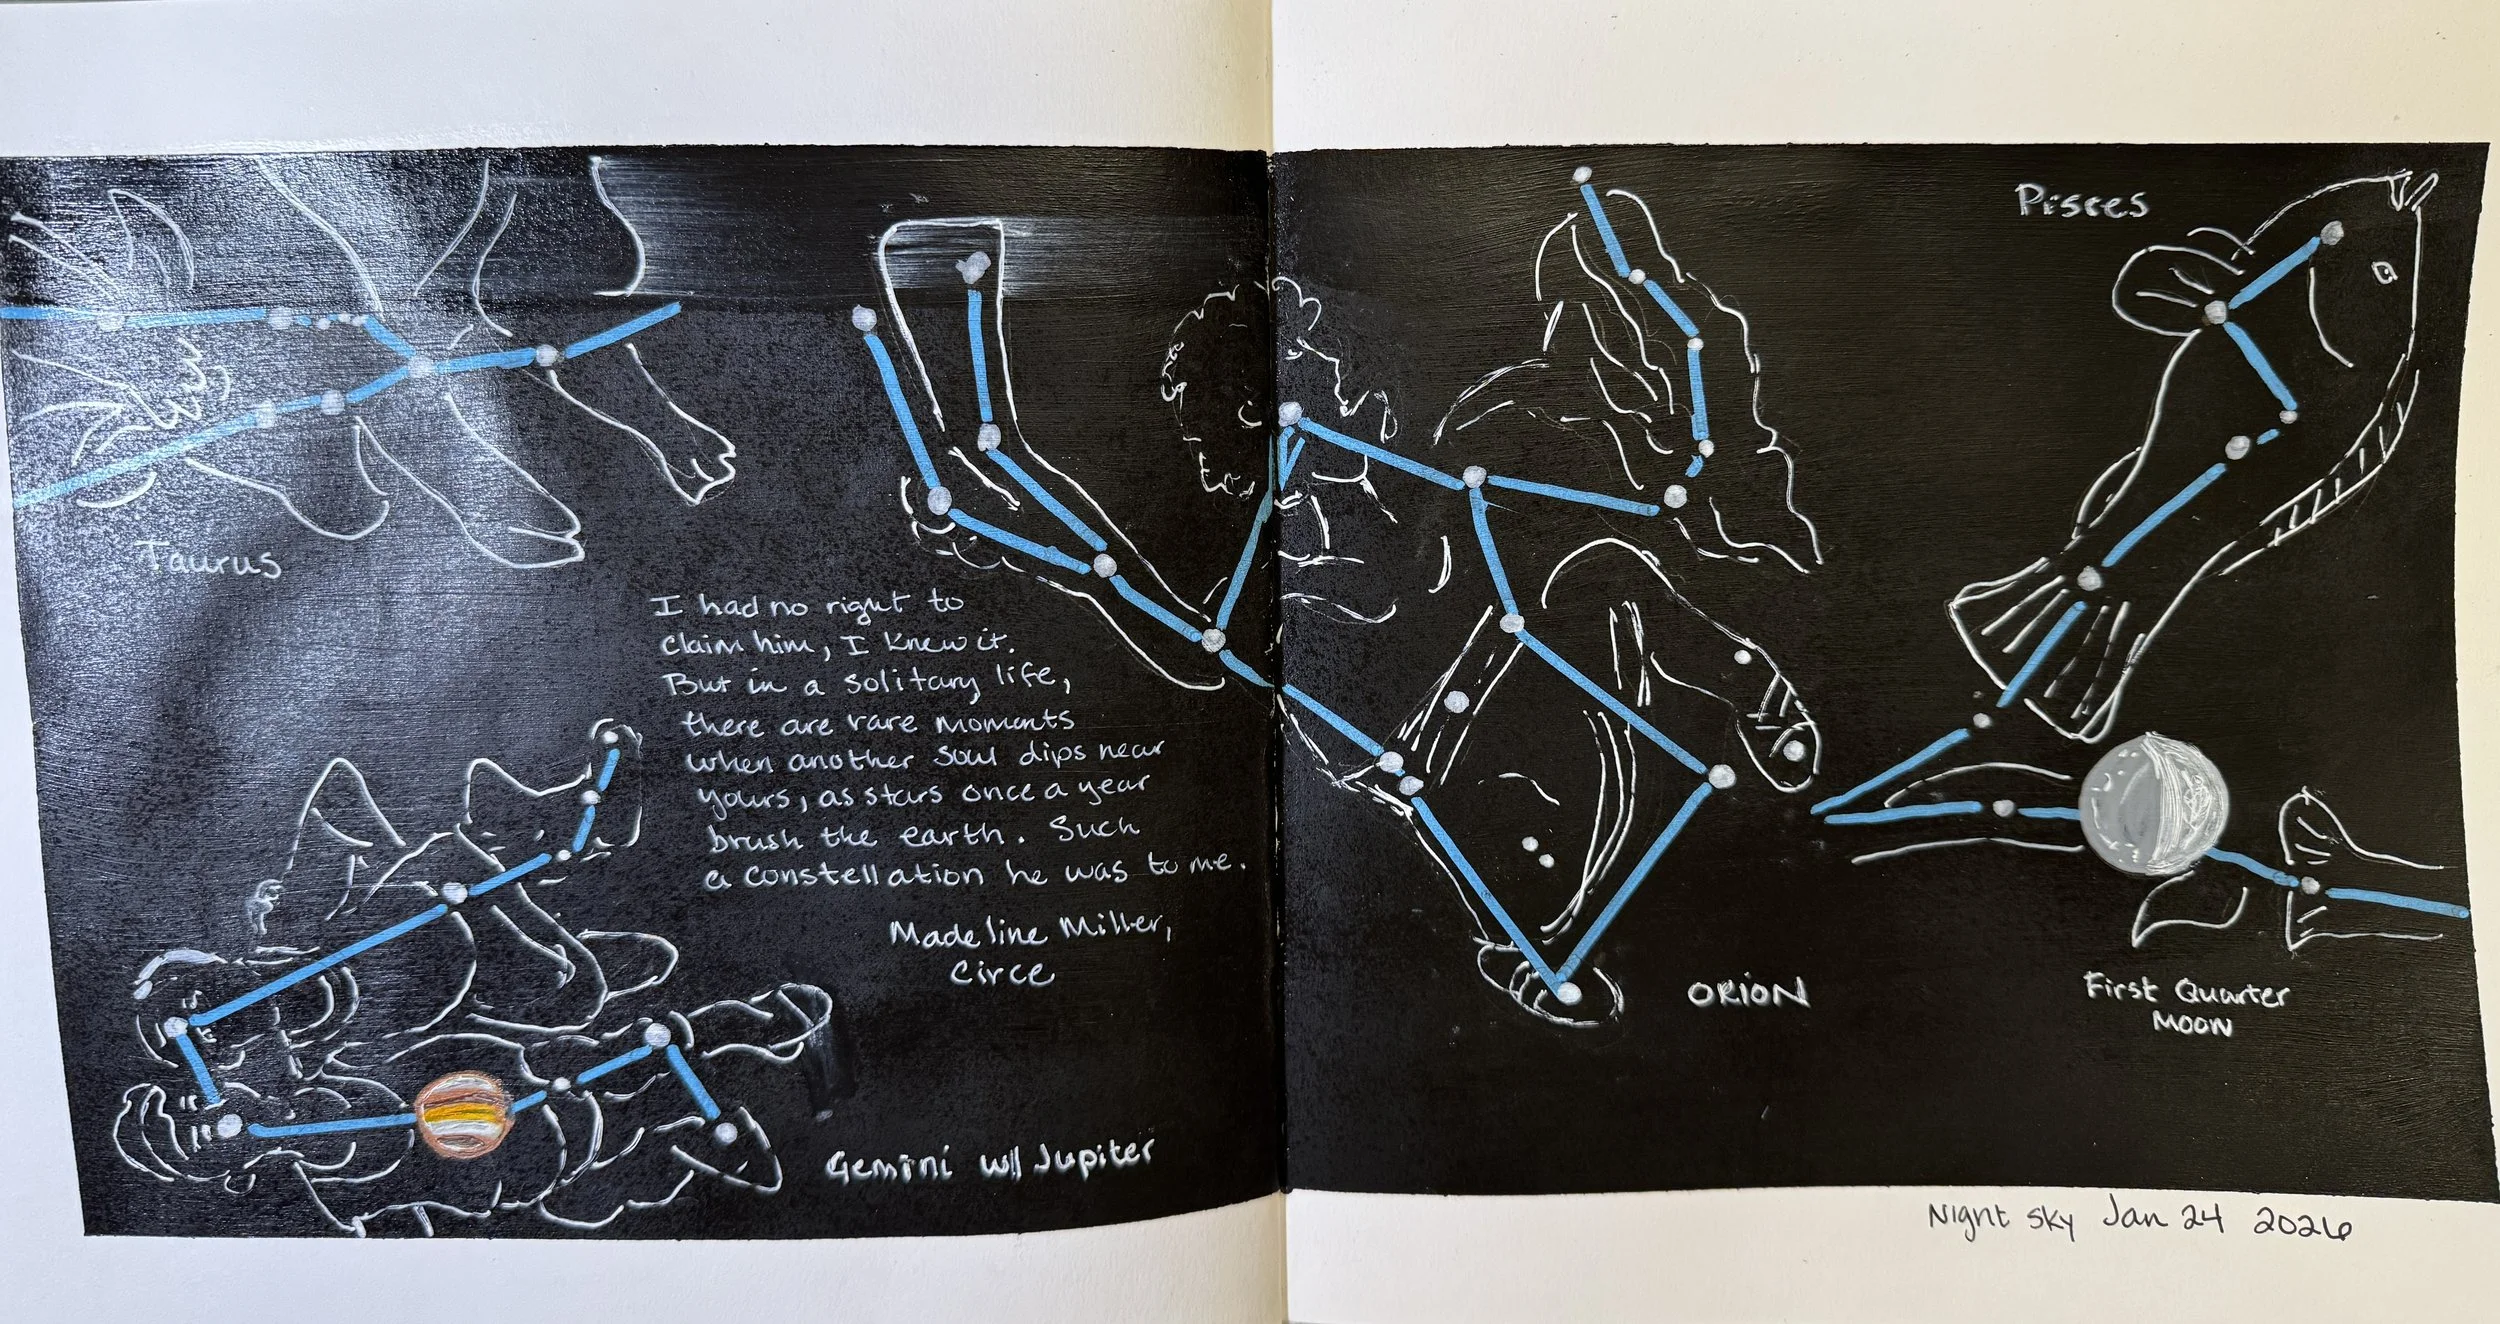 Pisces
Taurus
I had no right to
claim him, I knew it.
But in a solitary life,
there are rare moments
when another soul dips near
yours, as stars once a year
brush the earth. Such
a constellation he was to me.
Madeline Miller,
Circe
Gemini w/ Jupiter
ORION
First Quarter
Moon
Night sky Jan 24 2026